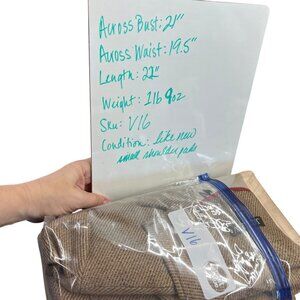 Across Bust: 21"
Across Waist: 19.5"
Length: 22"
Weight: 1lb 9oz
Sku: V16
Condition: Like new
small shoulder pads
V16